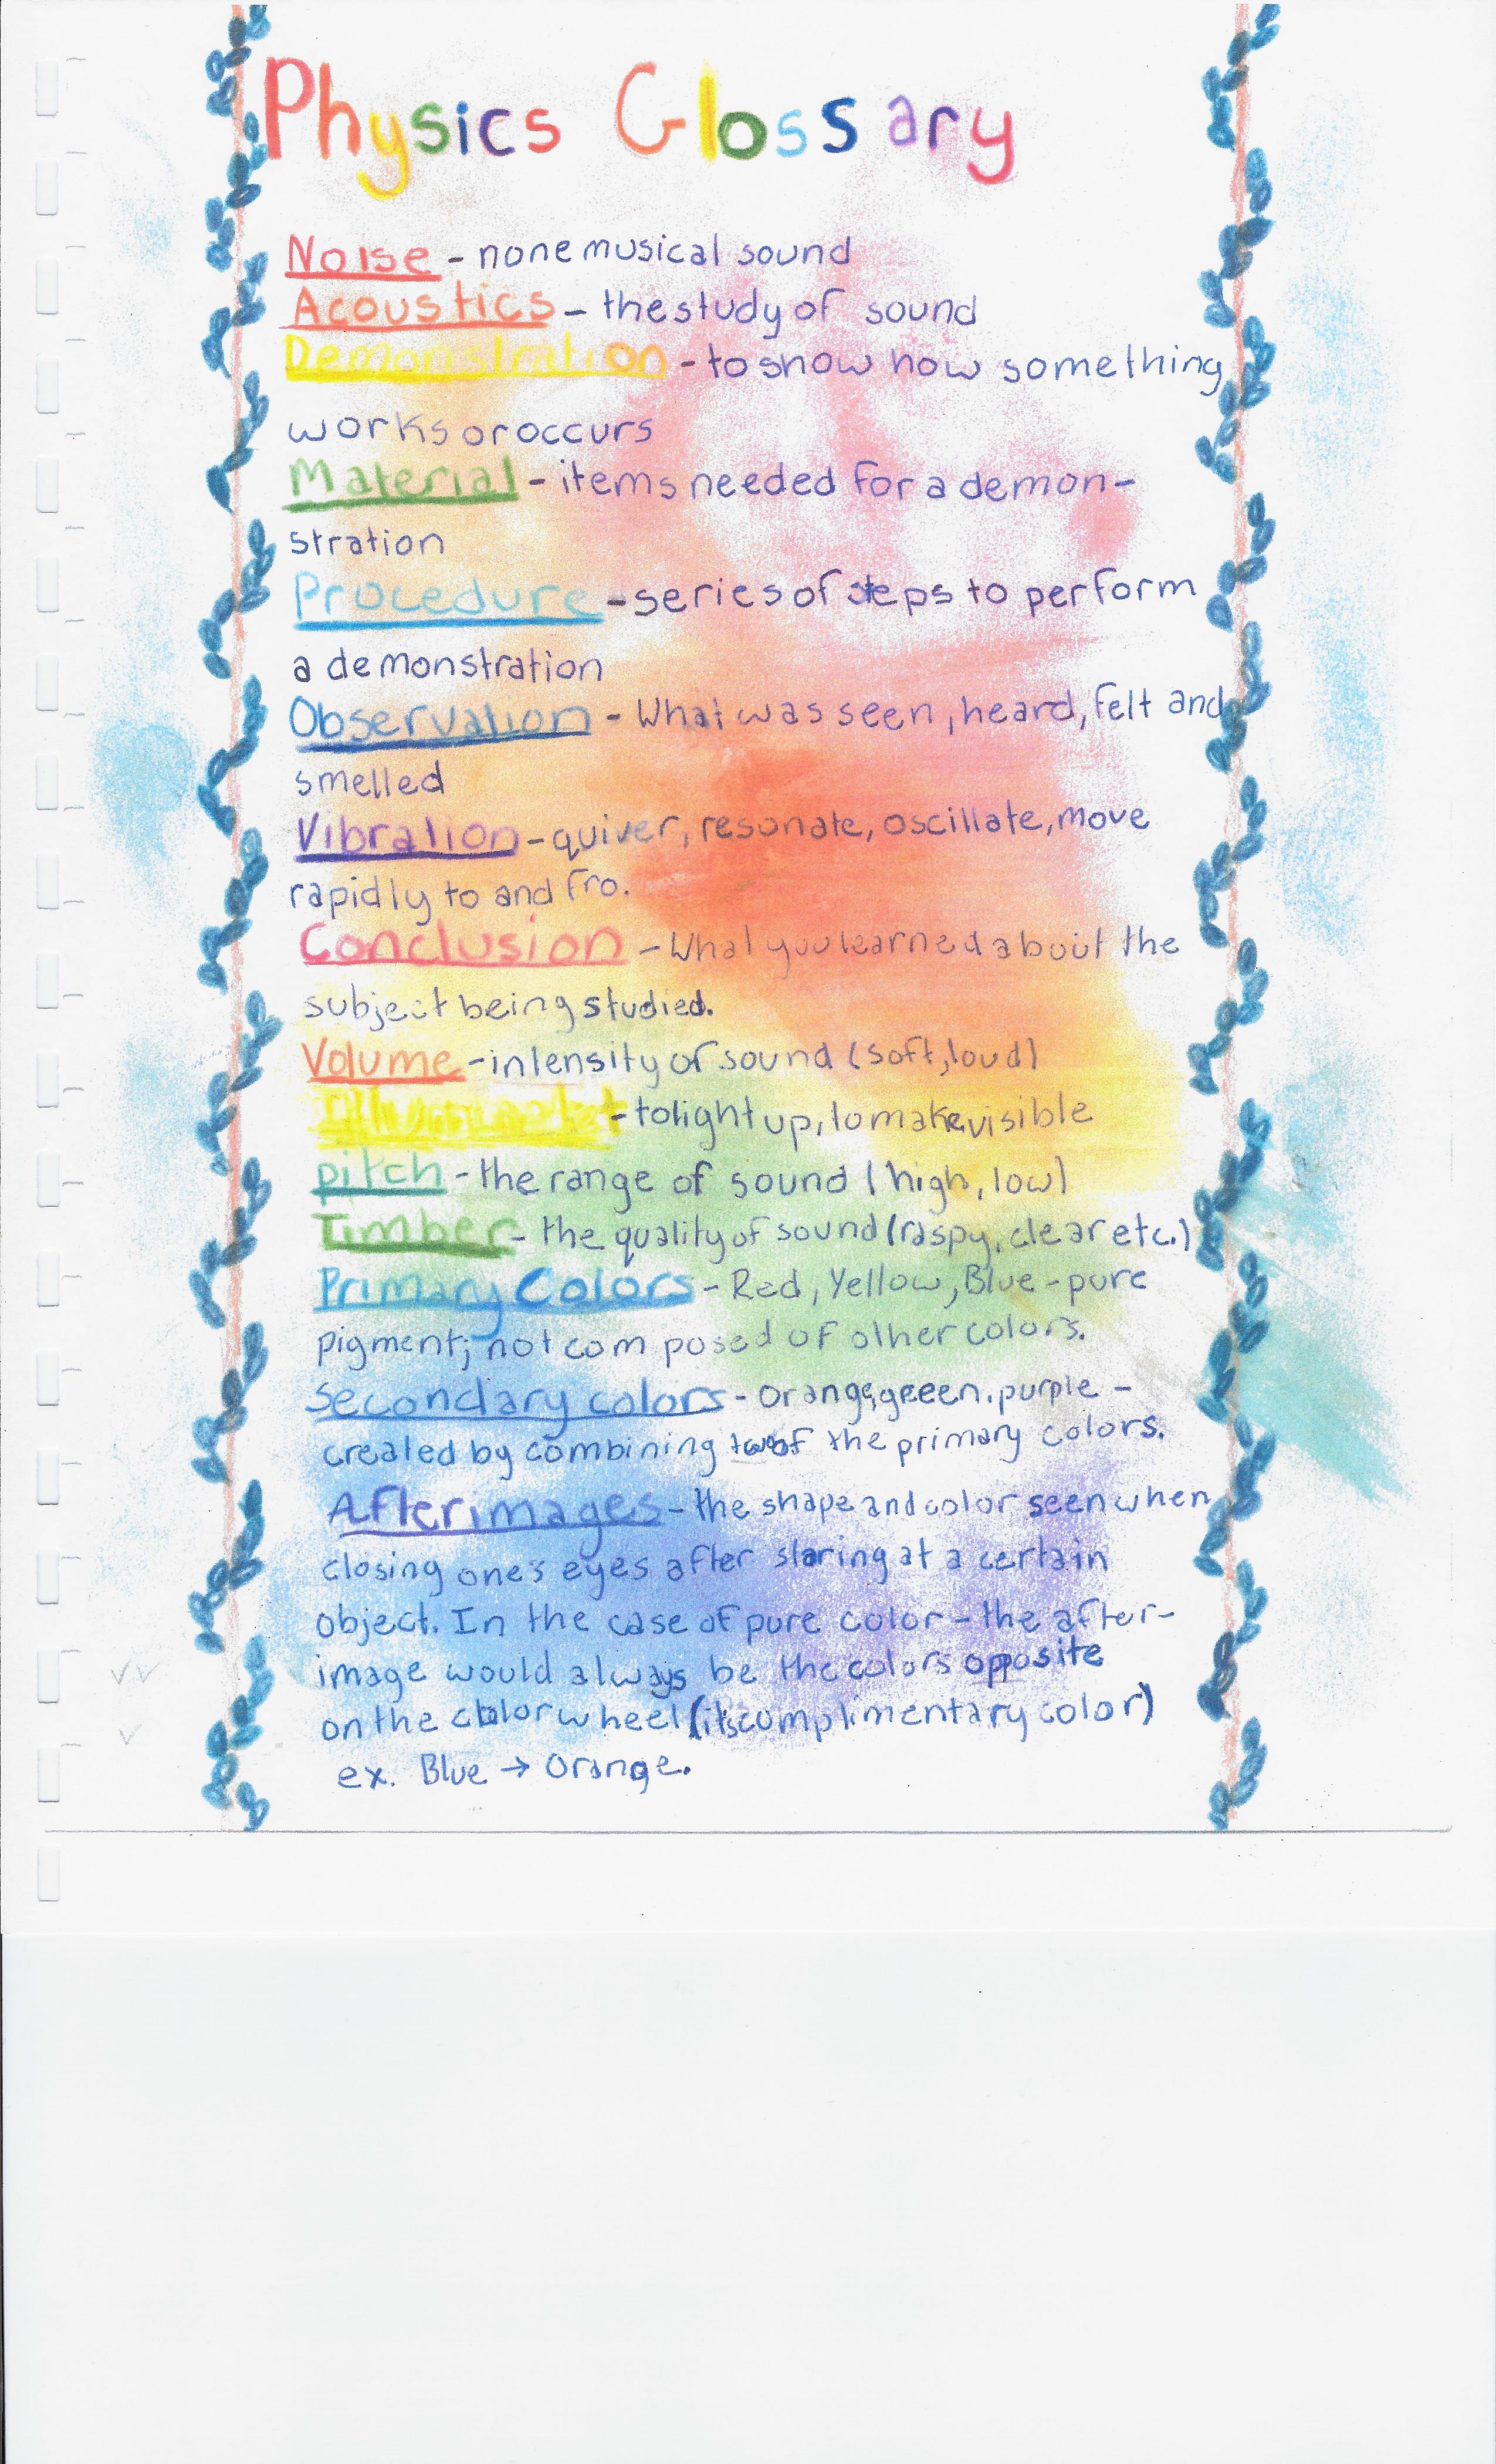 Physics Glossary
Noise - none musical sound
Acoustics - the study of sound
Demonstration - to show how something
works or occurs
Material - items needed for a demon-
stration
Procedure - series of steps to perform
a demonstration
Observation - What was seen, heard, felt and
smelled
Vibration - quiver, resonate, oscillate, move
rapidly to and fro.
Conclusion - What you learned about the
subject being studied.
Volume - intensity of sound (soft, loud)
- to light up, to make visible
pitch - the range of sound (high, low)
Timber - the quality of sound (raspy, clear etc.)
Primary Colors - Red, Yellow, Blue - pure
pigment; not composed of other colors.
Secondary colors - orange, greeen, purple -
created by combining two of the primary colors.
Afterimages - the shape and color seen when
closing one's eyes after staring at a certain
object. In the case of pure color - the after-
image would always be the colors opposite
on the color wheel (its complimentary color)
ex. Blue → Orange.